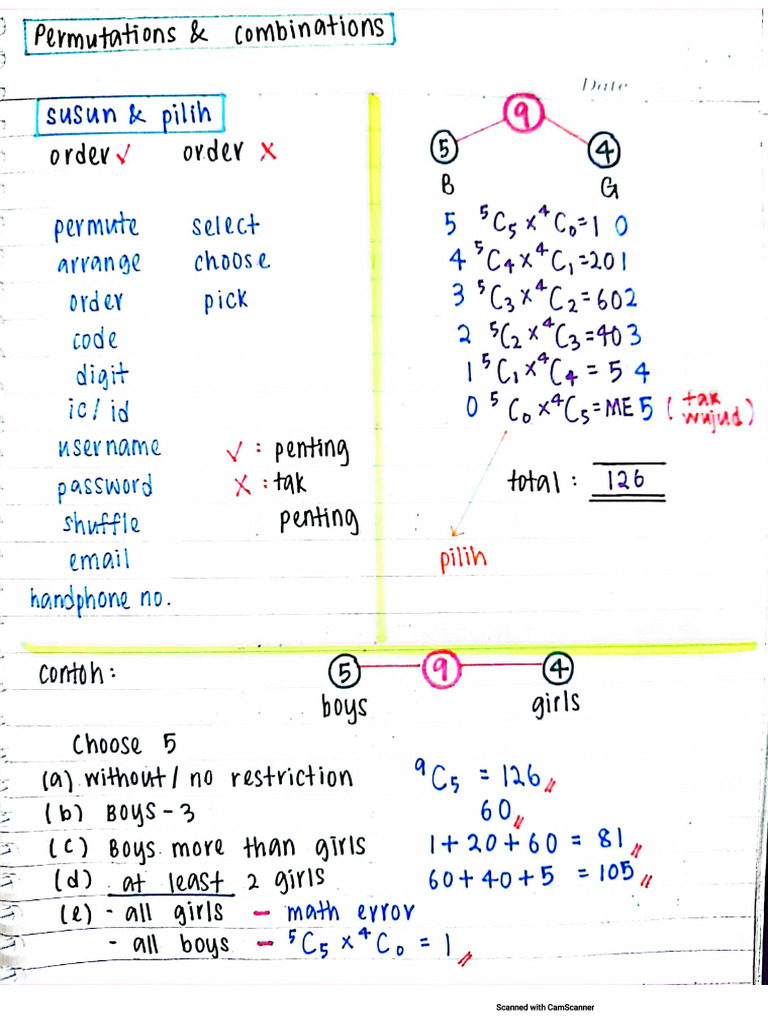 Permutations & combinations
Date
susun & pilih
order ✓ order ✗
permute select
arrange choose
order pick
code
digit
ic/id
username
password
shuffle
email
handphone no.
✓ : penting
✗ : tak
penting
9
5 4
B G
5 ⁵C₅ x ⁴C₀ = 1 0
4 ⁵C₄ x ⁴C₁ = 20 1
3 ⁵C₃ x ⁴C₂ = 60 2
2 ⁵C₂ x ⁴C₃ = 40 3
1 ⁵C₁ x ⁴C₄ = 5 4
0 ⁵C₀ x ⁴C₅ = ME 5 (tak wujud)
total : 126
pilih
contoh:
5 9 4
boys girls
Choose 5
(a) without / no restriction ⁹C₅ = 126
(b) Boys - 3 60
(c) Boys more than girls 1 + 20 + 60 = 81
(d) at least 2 girls 60 + 40 + 5 = 105
(e) - all girls - math error
- all boys - ⁵C₅ x ⁴C₀ = 1
Scanned with CamScanner